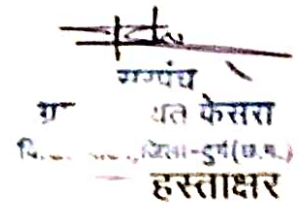 सरपंच
ग्रा  यत केसरा
वि. जिला-दुर्ग (छ.ग.)
हस्ताक्षर